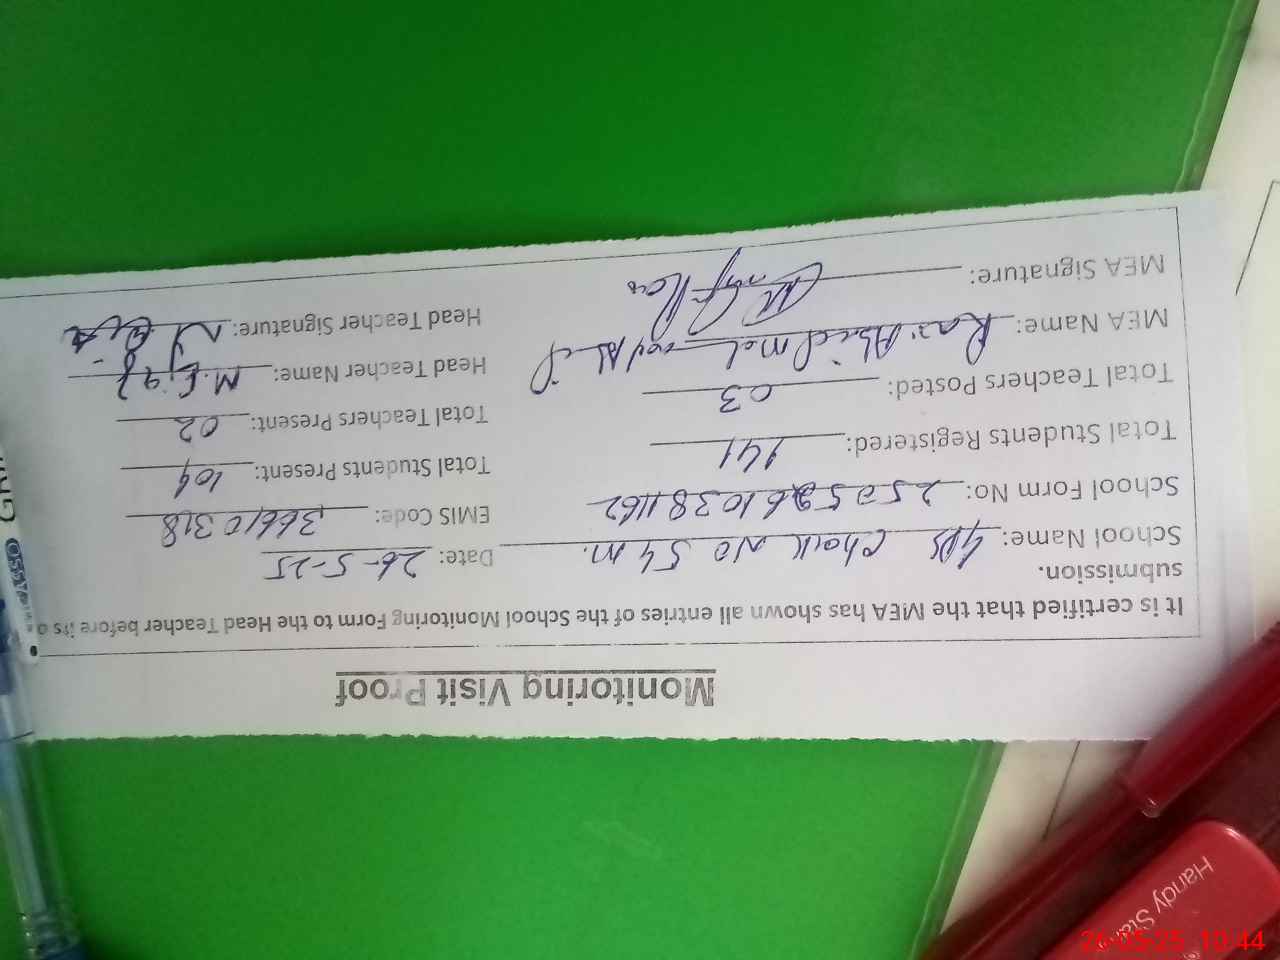 Monitoring Visit Proof
It is certified that the MEA has shown all entries of the School Monitoring Form to the Head Teacher before its
submission.
School Name: GPS Chak No 54 M. Date: 26-5-25
School Form No: EMIS Code: 36610318
Total Students Registered: 141 Total Students Present: 104
Total Teachers Posted: 03 Total Teachers Present: 02
MEA Name: Head Teacher Name:
MEA Signature: Head Teacher Signature:
Handy Sta
26-05-25 10:44